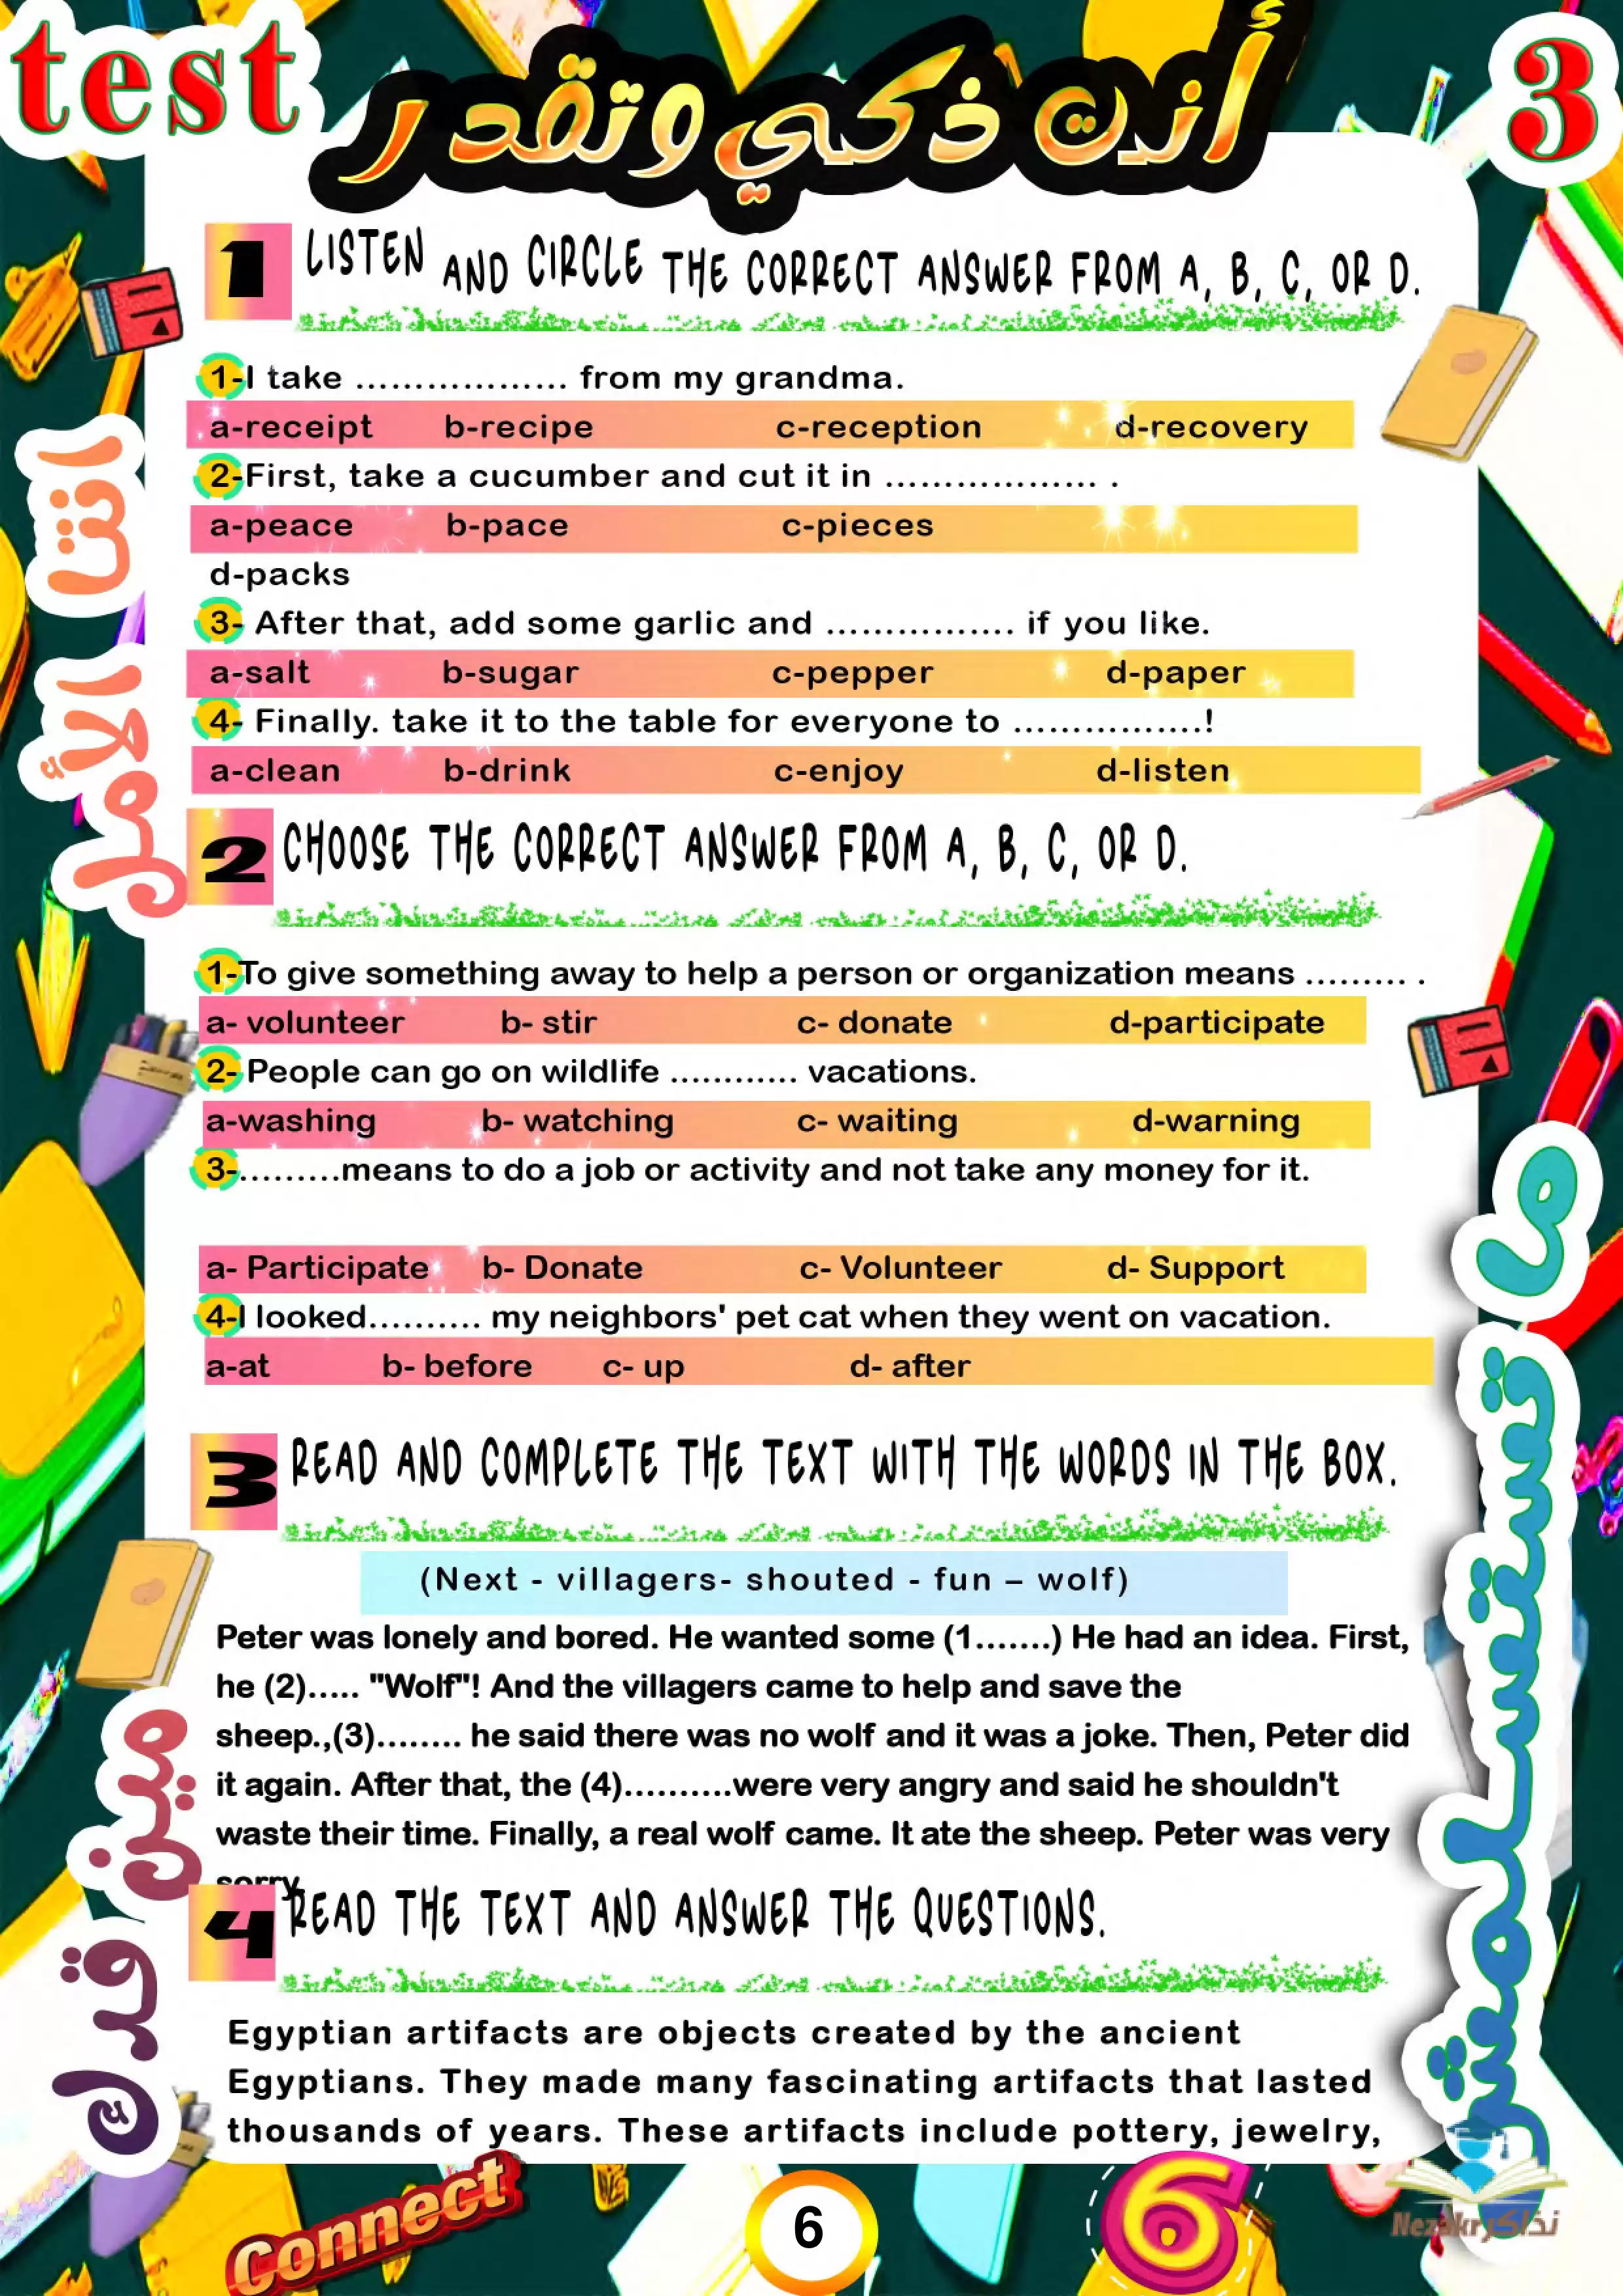 test
أنت ذكي وتقدر
3
1 LISTEN AND CIRCLE THE CORRECT ANSWER FROM A, B, C, OR D.
1-I take .................. from my grandma.
a-receipt b-recipe c-reception d-recovery
2-First, take a cucumber and cut it in .................. .
a-peace b-pace c-pieces
d-packs
3- After that, add some garlic and ................ if you like.
a-salt b-sugar c-pepper d-paper
4- Finally. take it to the table for everyone to ................!
a-clean b-drink c-enjoy d-listen
2 CHOOSE THE CORRECT ANSWER FROM A, B, C, OR D.
1-To give something away to help a person or organization means ......... .
a- volunteer b- stir c- donate d-participate
2- People can go on wildlife ............ vacations.
a-washing b- watching c- waiting d-warning
3-.........means to do a job or activity and not take any money for it.
a- Participate b- Donate c- Volunteer d- Support
4-I looked.......... my neighbors' pet cat when they went on vacation.
a-at b- before c- up d- after
3 READ AND COMPLETE THE TEXT WITH THE WORDS IN THE BOX.
(Next - villagers- shouted - fun – wolf)
Peter was lonely and bored. He wanted some (1.......) He had an idea. First,
he (2)..... "Wolf"! And the villagers came to help and save the
sheep.,(3)........ he said there was no wolf and it was a joke. Then, Peter did
it again. After that, the (4)..........were very angry and said he shouldn't
waste their time. Finally, a real wolf came. It ate the sheep. Peter was very
sorry
4 READ THE TEXT AND ANSWER THE QUESTIONS.
Egyptian artifacts are objects created by the ancient
Egyptians. They made many fascinating artifacts that lasted
thousands of years. These artifacts include pottery, jewelry,
انتا الأول
مين قدك
ما تستسلمش
Connect
6
6
Nezakr نذاكر